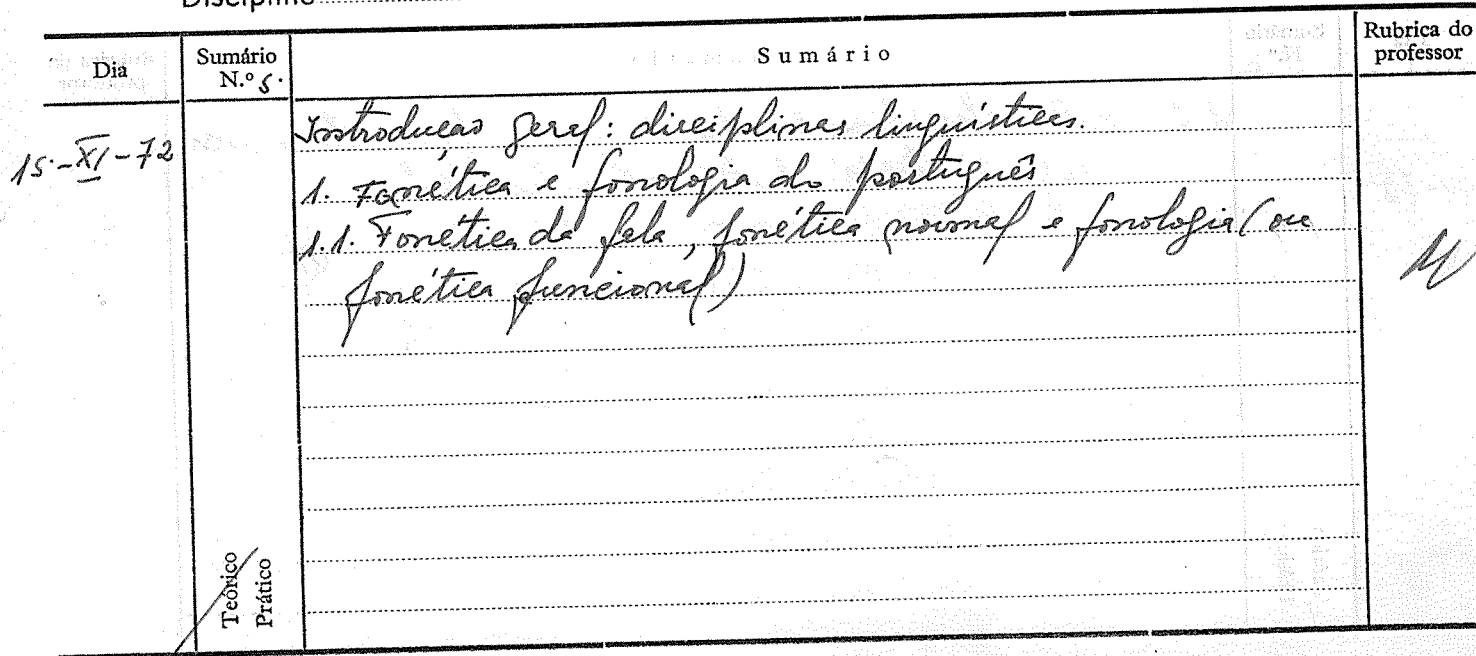 Disciplina
Dia
Sumário N.º 5.
Sumário
Rubrica do professor
15-XI-72
Introdução geral: disciplinas linguísticas.
1. Fonética e fonologia do português
1.1. Fonética da fala, fonética normal e fonologia (ou
fonética funcional)
Teórico
Prático